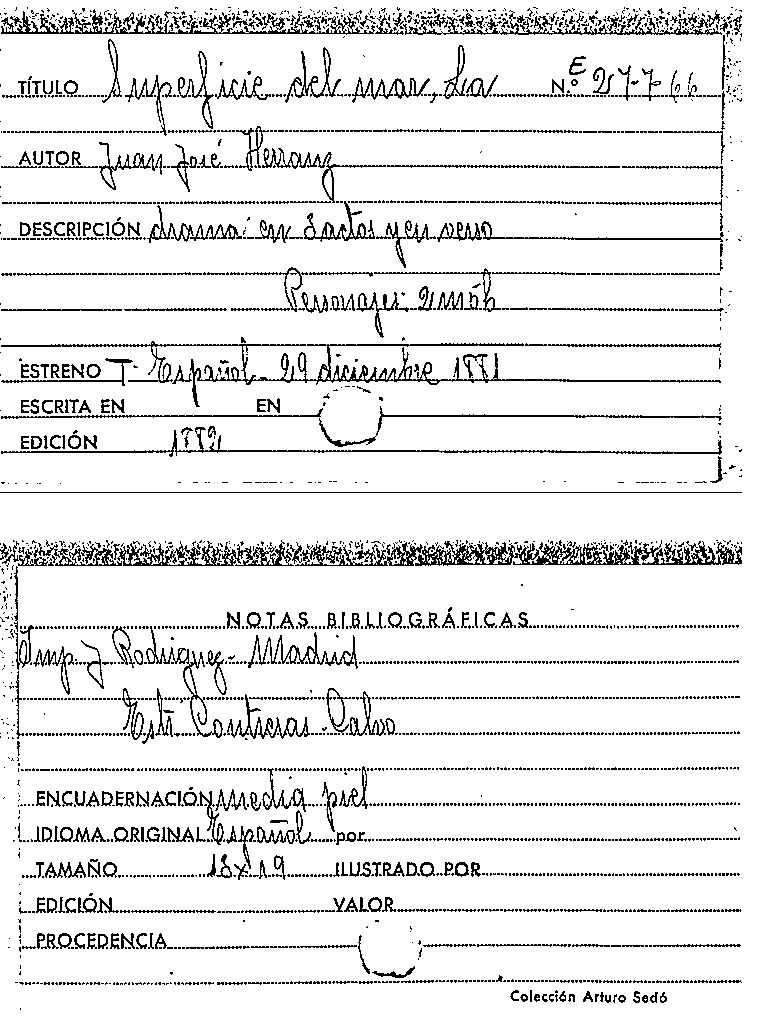 TÍTULO Superficie del mar, La N.º E 27-7-66
AUTOR Juan José Herranz
DESCRIPCIÓN drama en 3 actos y en verso
Personajes: 2 m 5 h
ESTRENO T. Español - 29 diciembre 1881
ESCRITA EN EN
EDICIÓN 1882
NOTAS BIBLIOGRÁFICAS
Imp J Rodriguez - Madrid
Estr Contreras - Calvo
ENCUADERNACIÓN media piel
IDIOMA ORIGINAL Español por
TAMAÑO 13x19 ILUSTRADO POR
EDICIÓN VALOR
PROCEDENCIA
Colección Arturo Sedó